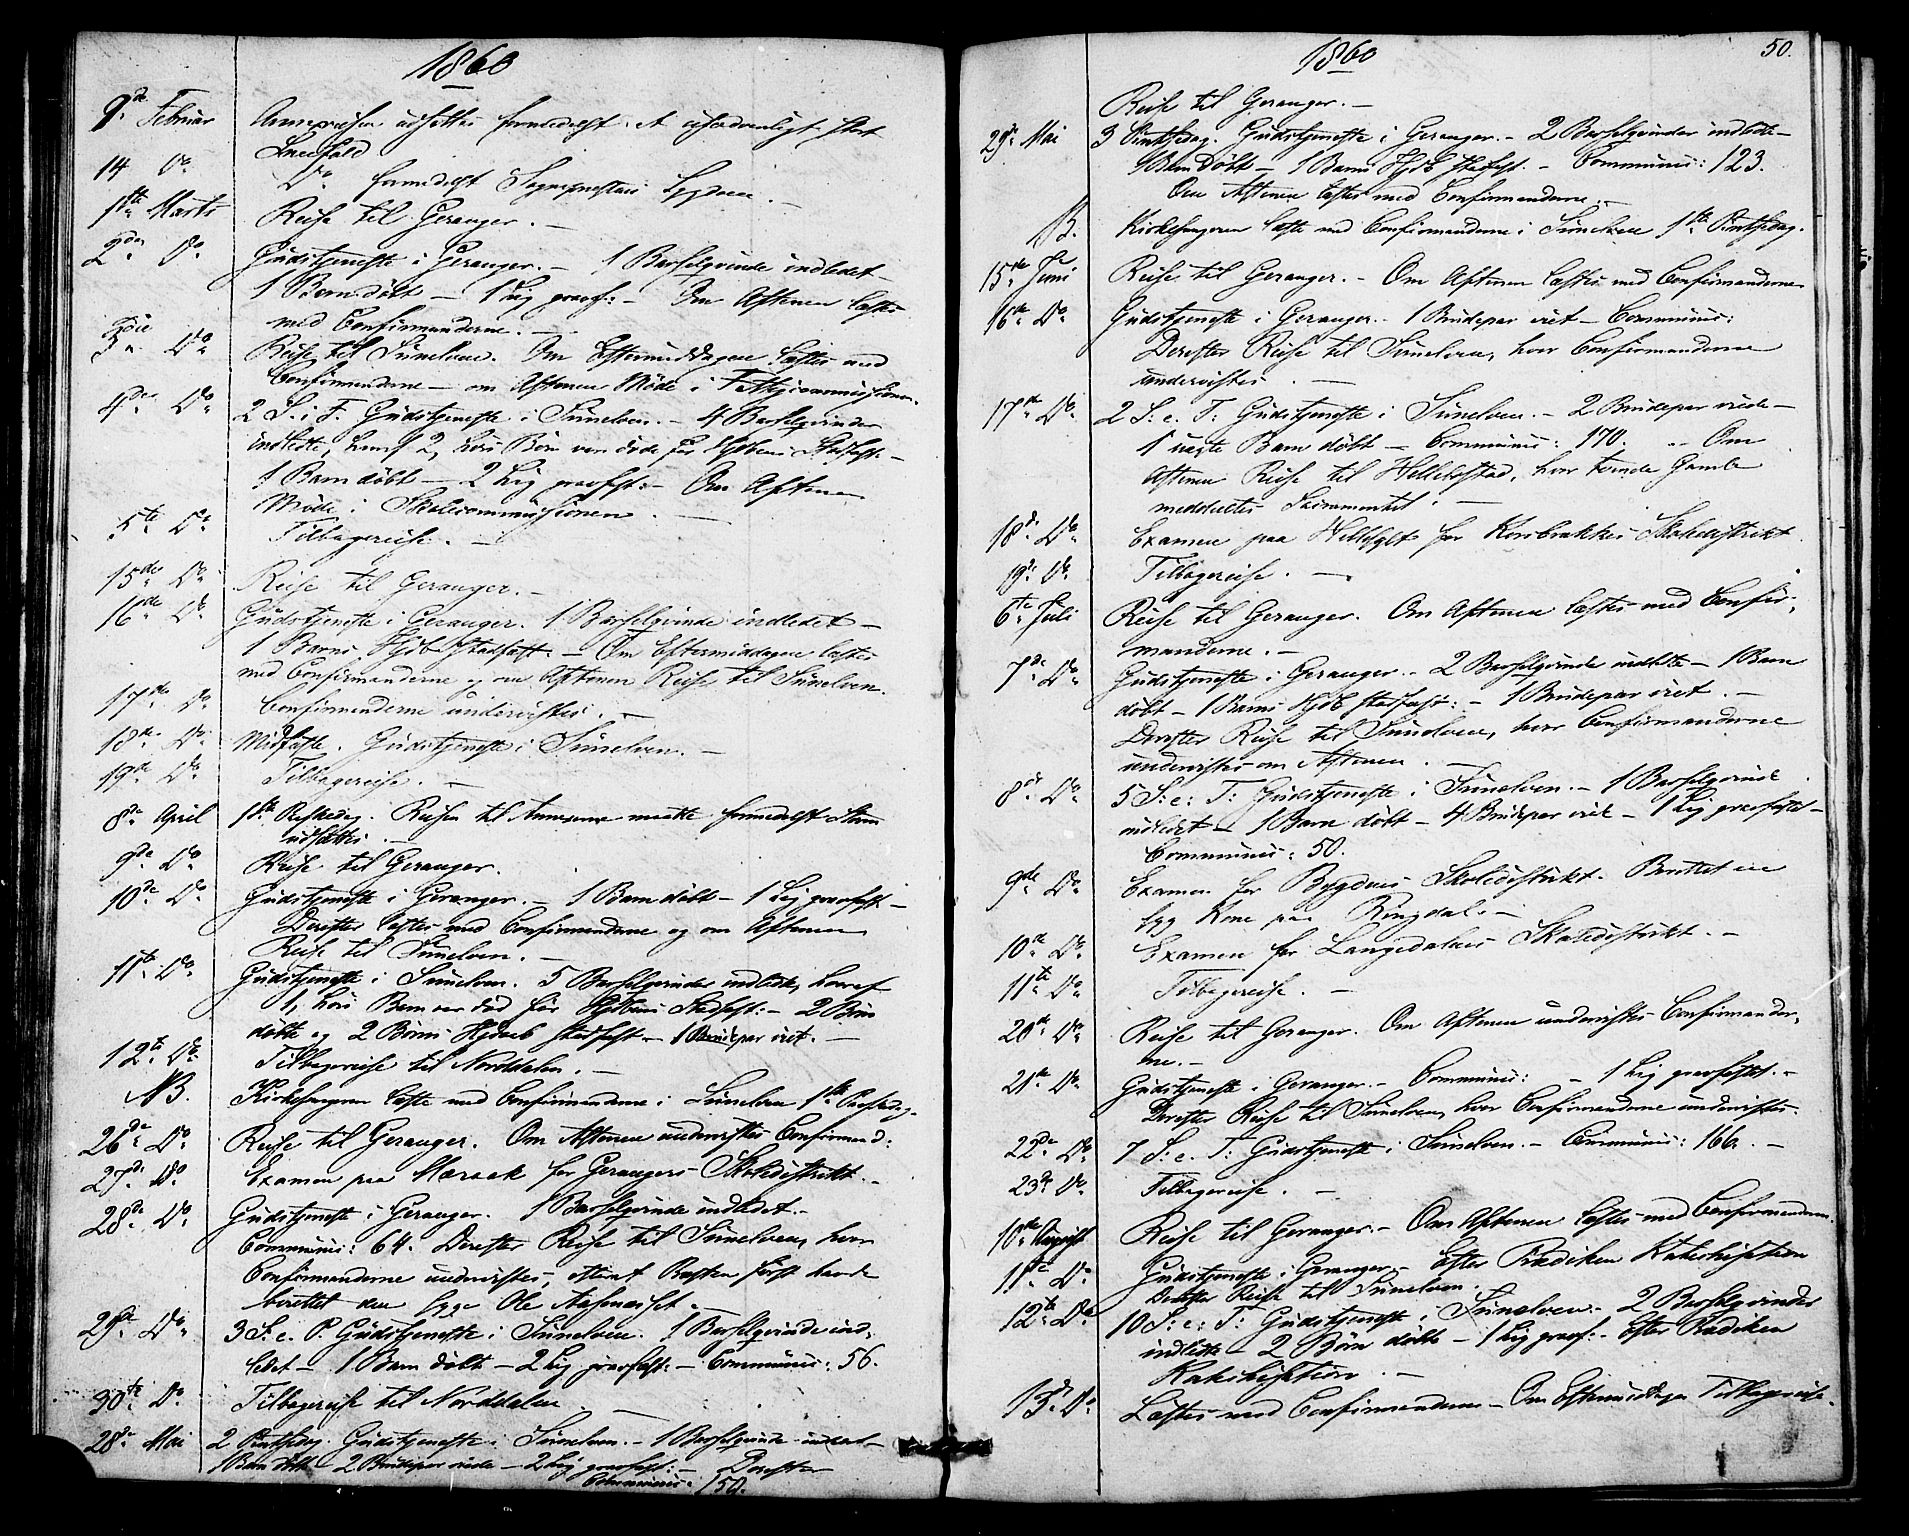 1860
9de Februar Annexreisen udsattes formedelst et usædvanligt stort
Sneefald
14 Do Do formedelst Sognepræstens Sygdom. —
1ste Marts Reise til Geranger. —
2den Do Gudstjeneste i Geranger. — 1 Barselqvinde indledet —
1 Barn døbt — 1 Lig gravf: — Om Aftenen læstes
med Confirmanderne. —
3die Do Reise til Sunelven. Om Eftermiddagen læstes med
Confirmanderne — om Aftenen Møde i Fattigcommissionen.
4de Do 2 S. i F. Gudstjeneste i Sunelven. — 4 Barselqvinder
indledte, hvoraf 2, hvis Børn vare døde før Daabens Stadfæst. —
1 Barn døbt — 2 Lig gravfst: — Om Aftenen
Møde i Skolecommissionen. —
5te Do Tilbagereise. —
15de Do Reise til Geranger. —
16de Do Gudstjeneste i Geranger. 1 Barselqvinde indledet —
1 Barns Hjdb. stadfæst. — Om Eftermiddagen læstes
med Confirmanderne og om Aftenen Reise til Sunelven.
17de Do Confirmanderne undervistes. —
18de Do Midfaste. Gudstjeneste i Sunelven. —
19de Do Tilbagereise. —
8de April 1ste Paaskedag. Reisen til Annexerne maatte formedelst Storm
udsættes. —
9de Do Reise til Geranger.
10de Do Gudstjeneste i Geranger. — 1 Barn døbt — 1 Lig gravfæst —
Derefter læstes med Confirmanderne og om Aftenen
Reise til Sunelven. —
11te Do Gudstjeneste i Sunelven. 5 Barselqvinder indledte, hvoraf
1, hvis Barn var død før Daabens Stadfæst: — 2 Børn
døbte og 2 Børns Hjdaab stadfæst — 1 Brudepar viet. —
12te Do Tilbagereise til Norddalen. —
NB. Kirkesangeren læste med Confirmanderne i Sunelven 1ste Paaskedag.
26de Do Reise til Geranger. Om Aftenen undervistes Confirmand:
27de Do Examen paa Maraak for Gerangers Skoledistrikt. —
28de Do Gudstjeneste i Geranger. 1 Barselqvinde indledet. —
Communic: 64. Derefter Reise til Sunelven, hvor
Confirmanderne undervistes, efterat Præsten først havde
berettet den syge Ole
29de Do 3 S. e. P. Gudstjeneste i Sunelven. 1 Barselqvinde ind-
ledet — 1 Barn døbt — 2 Lig gravfæst: — Communic: 56.
30te Do Tilbagereise til Norddalen
28de Mai 2 Pintsedag. Gudstjeneste i Sunelven. — 1 Barselqvinde indled —
1 Barn døbt — 2 Brudepar viede — 2 Lig gravfæst: — Derefter
Communic: 150.
1860 50.
Reise til Geranger. —
29de Mai 3 Pintsedag. Gudstjeneste i Geranger. — 2 Barselqvinder indledte —
Børn døbt — 1 Barns Hjdb stadfæst. — Communic: 123.
Om Aftenen læstes med Confirmanderne. —
NB. Kirkesangeren læste med Confirmanderne i Sunelven 1ste Pintsedag.
15de Juni Reise til Geranger. — Om Aftenen læstes med Confirmanderne
16de Do Gudstjeneste i Geranger. — 1 Brudepar viet — Communic:
Derefter Reise til Sunelven, hvor Confirmanderne
undervistes. —
17de Do 2 S: e. T: Gudstjeneste i Sunelven. — 2 Brudepar viede —
1 uægte Barn døbt — Communic: 170. — Om
Aftenen Reise til Hellebostad, hvor tvende Gamle
meddeeltes Sacramentet. —
18de Do Examen paa Hellesylt for Korsbrækkes Skoledistrikt.
19de Do Tilbagereise. —
6te Juli Reise til Geranger. Om Aftenen læstes med Confir-
manderne. —
7de Do Gudstjeneste i Geranger. — 2 Barselqvinder indledte — 1 Barn
døbt — 1 Barns Hjdb stadfæst: — 1 Brudepar viet. —
Derefter Reise til Sunelven, hvor Confirmanderne
undervistes om Aftenen. —
8de Do 5 S: e: T: Gudstjeneste i Sunelven. — 1 Barselqvinde
indledet — 1 Barn døbt — 4 Brudepar viet — 1 Lig gravfæstet —
Communic: 50.
9de Do Examen for Bygdens Skoledistrikt. Berettet en
syg Kone paa Ringdal. —
10de Do Examen for Langedalens Skoledistrikt. —
11te Do Tilbagereise. —
20de Do Reise til Geranger. Om Aftenen undervistes Confirmander-
ne. —
21de Do Gudstjeneste i Geranger. — Communic: — 1 Lig gravfæstet. —
Derefter Reise til Sunelven, hvor Confirmanderne undervistes.
22de Do 7 S: e. T: Gudstjeneste i Sunelven. — Communic: 166. —
23de Do Tilbagereise. —
10de August Reise til Geranger. — Om Aftenen læstes med Confirmanderne.
11te Do Gudstjeneste i Geranger. Efter Prædiken Katechisation
Derefter Reise til Sunelven.
12te Do 10 S: e: T: Gudstjeneste i Sunelven. 2 Barselqvinder
indledte — 2 Børn døbte — 1 Lig gravf: — Efter Prædiken
Katechisation. —
13de Do Læstes med Confirmanderne — Om Eftermiddagen Tilbagereise.